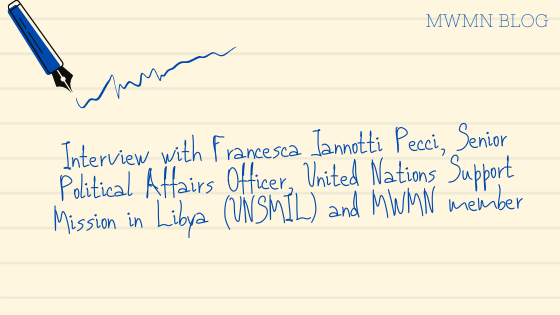 MWMN BLOG
Interview with Francesca Iannotti Pecci, Senior
Political Affairs Officer, United Nations Support
Mission in Libya (UNSMIL) and MWMN member